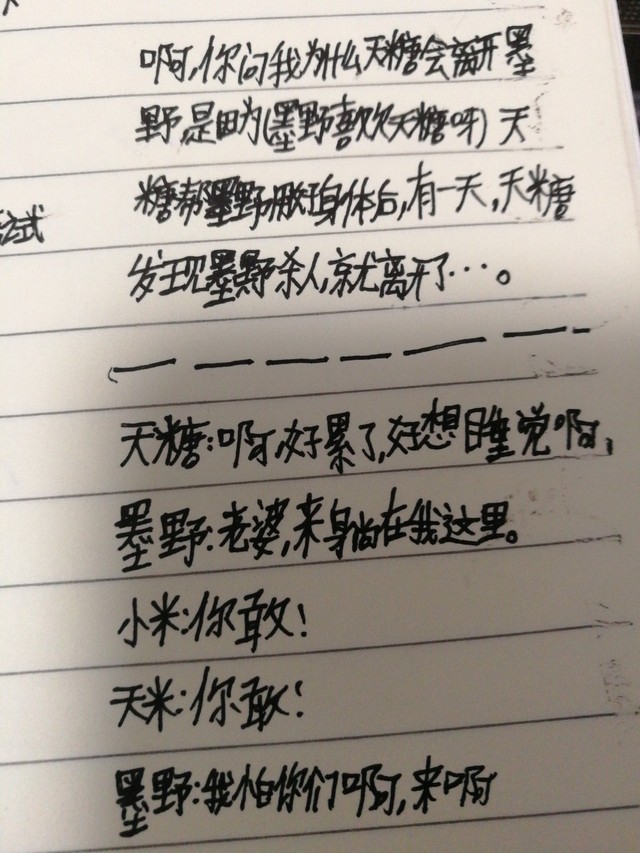 啊,你问我为什么天糖会离开墨
野是因为(墨野喜欢天糖呀)天
糖帮墨野身体后,有一天,天糖
发现墨野杀人,就离开了…。
试
— — — — — —
天糖:啊,好累了,好想睡觉啊,
墨野:老婆,来身尚在我这里。
小米:你敢!
天米:你敢!
墨野:我怕你们啊,来啊